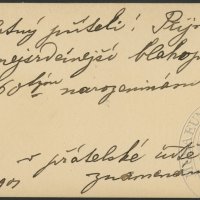 ctný příteli! Přij
nejsrdečnější blahop
50tým narozeninám
v přátelské úctě
znamená